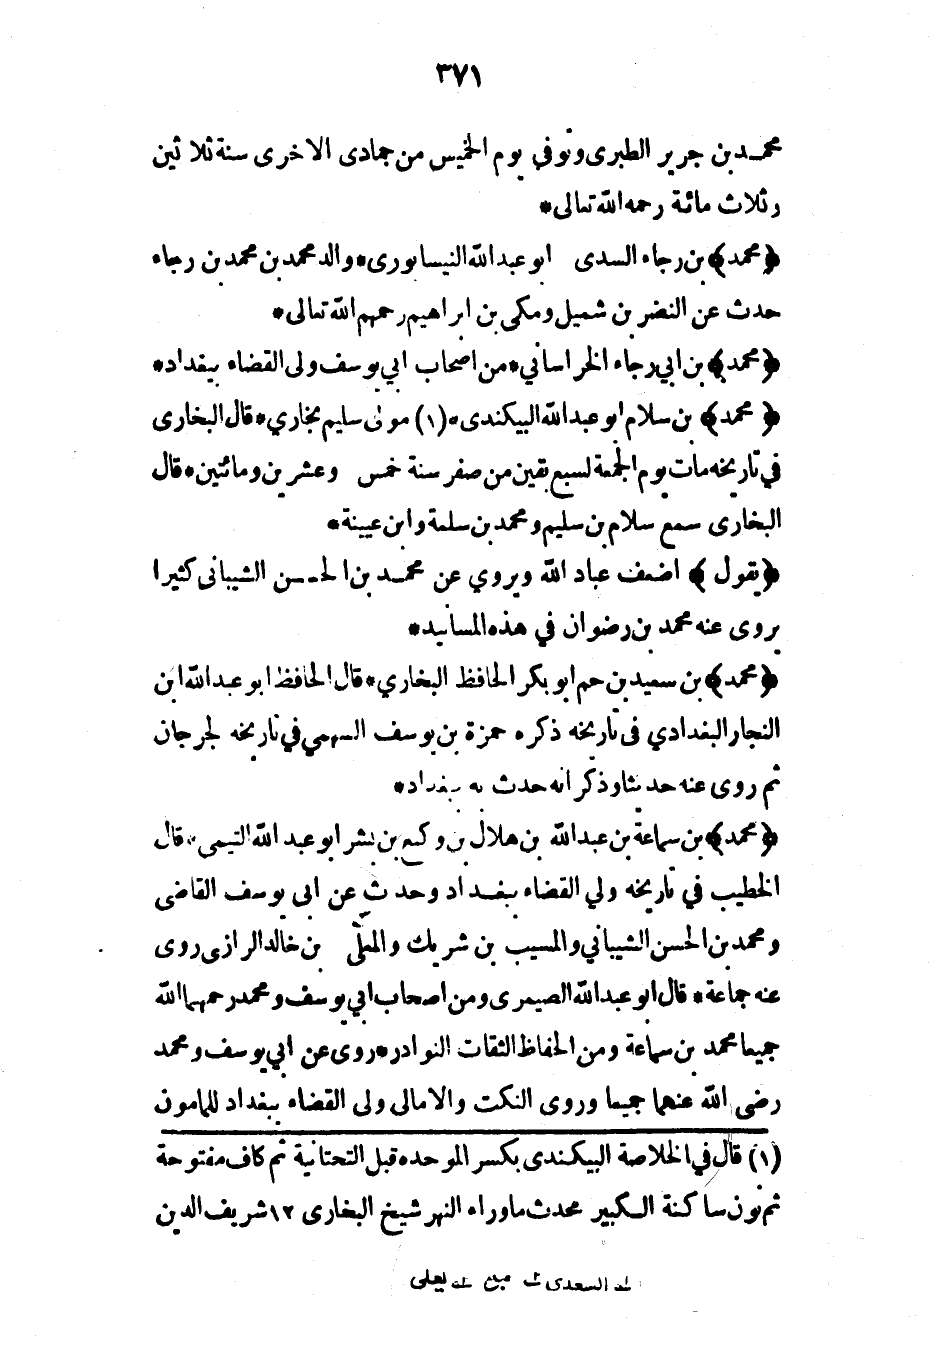 ٣٧١
محمد بن جرير الطبرى وتوفي يوم الخميس من جمادى الاخرى سنة ثلاثين
وثلاث مائة رحمه الله تعالى*
﴿محمد﴾ بن رجاء السدى ابو عبدالله النيسابورى* والد محمد بن محمد بن رجاء
حدث عن النضر بن شميل ومكى بن ابراهيم رحمهم الله تعالى*
﴿محمد﴾ بن ابي رجاء الخراساني* من اصحاب ابي يوسف ولى القضاء ببغداد*
﴿محمد﴾ بن سلام ابو عبدالله البيكندى* (١) مولى سليم بخاري* قال البخارى
في تاريخه مات يوم الجمعة لسبع بقين من صفر سنة خمس وعشرين ومائتين* قال
البخارى سمع سلام بن سليم ومحمد بن سلمة وابن عيينة*
﴿يقول﴾ اضعف عباد الله ويروي عن محمد بن الحسن الشيبانى كثيرا
يروى عنه محمد بن رضوان في هذه المسانيد*
﴿محمد﴾ بن سعيد بن حم ابو بكر الحافظ البخاري* قال الحافظ ابو عبدالله ابن
النجار البغدادي فى تاريخه ذكره حمزة بن يوسف السهمي في تاريخه لجرجان
ثم روى عنه حديثا وذكر انه حدث به ببغداد*
﴿محمد﴾ بن سماعة بن عبدالله بن هلال بن وكيع بن بشر ابو عبد الله التيمى* قال
الخطيب في تاريخه ولي القضاء ببغداد وحدث عن ابى يوسف القاضى
ومحمد بن الحسن الشيباني والمسيب بن شريك والمعلى بن خالد الرازى روى
عنه جماعة* قال ابو عبدالله الصيمرى ومن اصحاب ابي يوسف ومحمد رحمهما الله
جميعا محمد بن سماعة ومن الحفاظ الثقات النوادر* روى عن ابي يوسف ومحمد
رضى الله عنهما جميعا وروى النكت والامالى ولى القضاء ببغداد للمامون
(١) قال في الخلاصة البيكندى بكسر الموحده قبل التحتانية ثم كاف مفتوحة
ثم نون ساكنة الكبير محدث ماوراء النهر شيخ البخارى ١٢ شريف الدين
السعدى يعلى